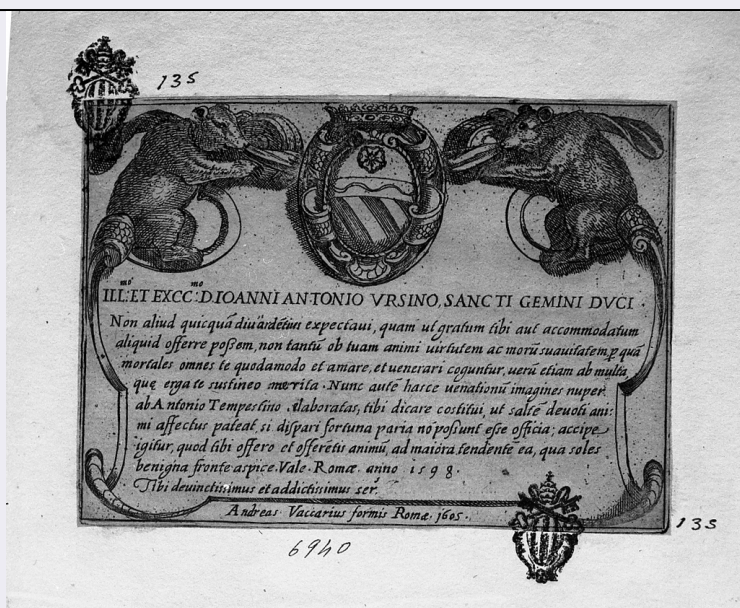 135
ILL.mo ET EXCC.mo D IOANNI ANTONIO VRSINO, SANCTI GEMINI DVCI.
Non aliud quicquã diu ardẽtius expectaui, quam ut gratum tibi aut accommodatum
aliquid offerre possem, non tantũ ob tuam animi uirtutem ac morũ suauitatem, p quã
mortales omnes te quodamodo et amare, et uenerari coguntur, uerũ etiam ob multa,
quę erga te sustineo merita. Nunc autẽ hasce uenationũ imagines nuper
ab Antonio Tempestino elaboratas, tibi dicare costitui, ut saltẽ deuoti ani:
mi affectus pateat, si dispari fortuna paria nõ possunt esse officia; accipe
igitur, quod tibi offero et offerẽtis animũ, ad maiora tendentẽ ea, qua soles
benigna fronte aspice. Vale. Romæ. anno 1598.
Tibi deuinctissimus et addictissimus ser.
Andreas Vaccarius formis Romæ. 1605.
135
6940